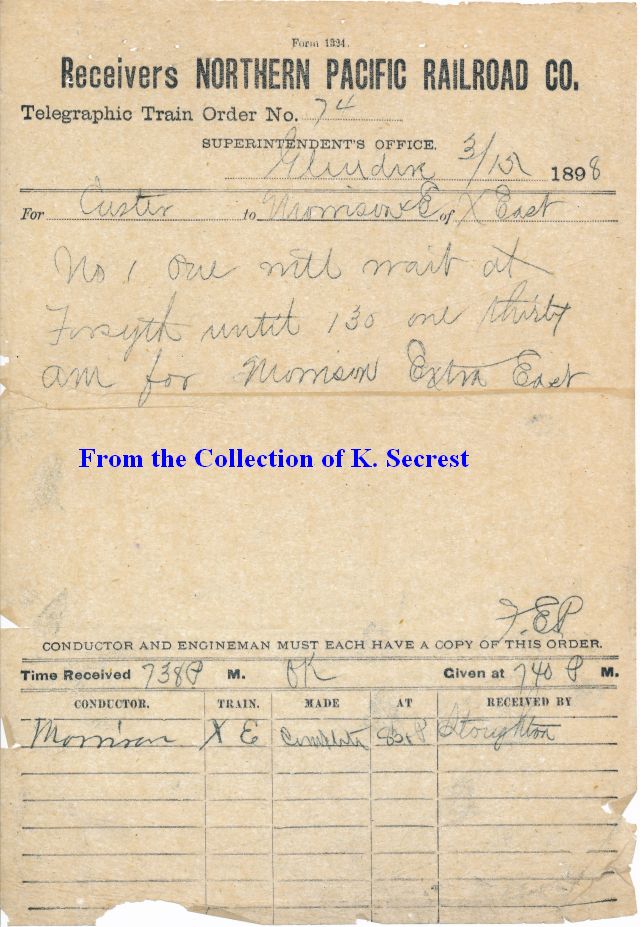 Form 1324.
Receivers NORTHERN PACIFIC RAILROAD CO.
Telegraphic Train Order No. 74
SUPERINTENDENT'S OFFICE.
Glendive 3/15 1898
For Custer to Morrison X E of X East
No 1 one will wait at
Forsyth until 130 one thirty
am for Morrison Extra East
From the Collection of K. Secrest
F.E.P
CONDUCTOR AND ENGINEMAN MUST EACH HAVE A COPY OF THIS ORDER.
Time Received 738 P M. OK Given at 740 P M.
CONDUCTOR. TRAIN. MADE AT RECEIVED BY
Morrison X E Complete Stoughton